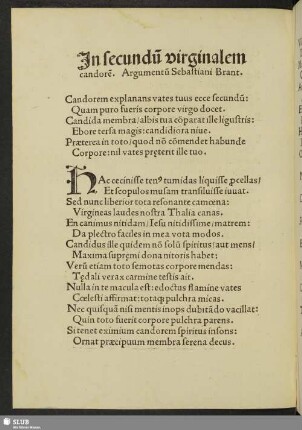 In secundũ virginalem
candorẽ. Argumentũ Sebastiani Brant.
Candorem explanans vates tuus ecce secundũ:
Quam puro fueris corpore virgo docet.
Candida membra/albis tua cõparat ille ligustris:
Ebore tersa magis: candidiora niue.
Præterea in toto/quod nõ cõmendet habunde
Corpore: nil vates preterit ille tuo.
HAec cecinisse ten⁹ tumidas liquisse ꝓcellas/
Et scopulos musam transiluisse iuuat.
Sed nunc liberior tota resonante camœna:
Virgineas laudes nostra Thalia canas.
En canimus nitidam/Iesu nitidissime/matrem:
Da plectro faciles in mea vota modos.
Candidus ille quidem nõ solũ spiritus/aut mens/
Maxima supremi dona nitoris habet:
Verũ etiam toto femotas corpore mendas:
Tędali verax carmine testis ait.
Nulla in te macula est: edoctus flamine vates
Cœlesti affirmat: totaqȝ pulchra micas.
Nec quisquã nisi mentis inops dubitãdo vacillat:
Quin toto fuerit corpore pulchra parens.
Si tenet eximium candorem spiritus insons:
Ornat præcipuum membra serena decus.
SLUB